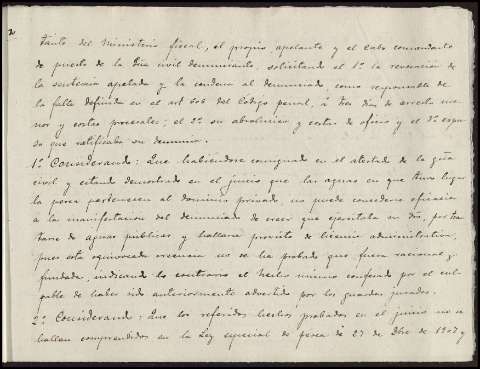 tante del Ministerio fiscal, el propio apelante y el cabo comandante
de puesto de la Gua civil denunciante, solicitando el 1º la revocación de
la sentencia apelada y la condena al denunciado, como responsable de
la falta definida en el art 606 del Código penal, á tres días de arresto me-
nor y costas procesales; el 2º su absolución y costas de oficio y el 3º expu-
so que ratificaba su denuncia.
1º Considerando: Que habiéndose consignado en el atestado de la gua
civil y estando demostrado en el juicio que las aguas en que tuvo lugar
la pesca pertenecen al dominio privado, no puede concederse eficacia
a la manifestación del denunciado de creer que ejercitaba su dro, por tra-
tarse de aguas públicas y hallarse provisto de licencia administrativa,
pues esta equivocada creencia no se ha probado que fuera racional y
fundada, indicando lo contrario el hecho mismo confesado por el cul-
pable de haber sido anteriormente advertido por los guardas jurados.
2º Considerando: Que los referidos hechos probados en el juicio no se
hallan comprendidos en la Ley especial de pesca de 27 de Dbre de 1907 y